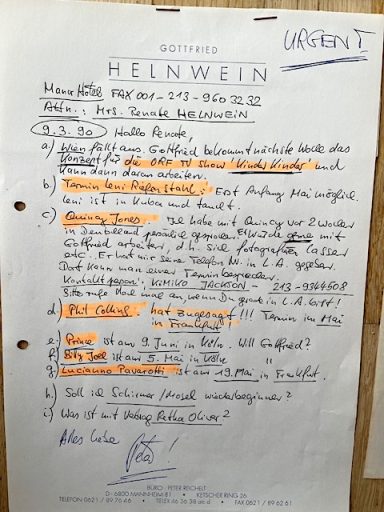 URGENT
GOTTFRIED
HELNWEIN
Manor Hotel FAX 001-213-960 32 32
Attn.: Mrs. Renate HELNWEIN
9.3.90 Hallo Renate,
a.) Wien fällt aus. Gottfried bekommt nächste Woche das
Konzept für die ORF TV Show 'Kinder Kinder' und
kann dann daran arbeiten.
b.) Termin Leni Riefenstahl: Erst Anfang Mai möglich.
Leni ist in Kuba und taucht.
c.) Quincy Jones: Ich habe mit Quincy vor 2 Wochen
in Deutschland persönlich gesprochen. Er würde gerne mit
Gottfried arbeiten, d.h. sich fotografieren lassen
etc. Er hat mir seine Telefon Nr. in L.A. gegeben.
Dort kann man einen Termin besprechen.
Kontaktperson: KIMIKO JACKSON - 213-9344508
Bitte rufe doch mal an, wenn Du gerade in L.A. bist!
d.) Phil Collins: hat zugesagt!!! Termin im Mai
in Frankfurt!
e.) Prince ist am 9. Juni in Köln. Will Gottfried?
f.) Billy Joel ist am 5. Mai in Köln "
g.) Lucianno Pavarotti ist am 19. Mai in Frankfurt. "
h.) Soll ich Schirner / Mosel wiederbeginnen?
i.) Was ist mit Vertrag Oliver?
Alles Liebe
Peter!
BÜRO · PETER REICHELT
D - 6800 MANNHEIM 81 • KETSCHER RING 26
TELEFON 0621 / 89 76 46 • TELEX 46 36 38 • FAX 0621 / 89 62 61